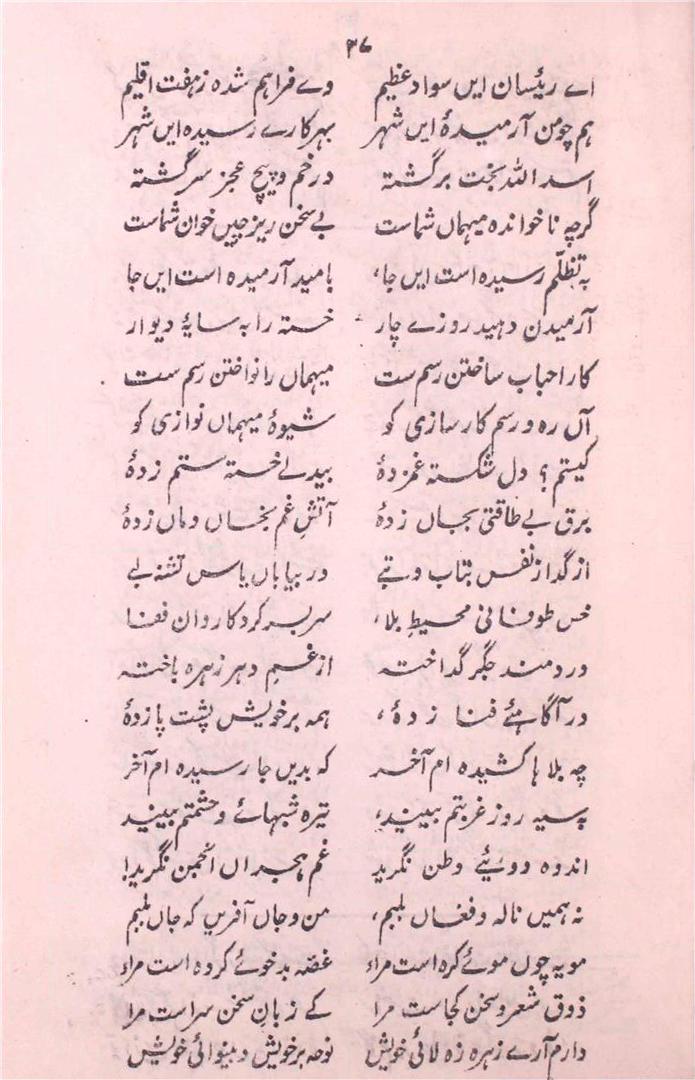 ۳۷
اے رئیسان ایں سواد عظیم وے فراہم شدہ ز ہفت اقلیم
ہم چو من آرمیدۂ ایں شہر بہر کارے رسیدہ ایں شہر
اسد اللہ بخت برگشتہ در خم و پیچ عجز سرگشتہ
گرچہ ناخواندہ میہماں شماست بے سخن ریزہ چیں خوان شماست
بہ تظلّم رسیدہ است ایں جا، بامید آرمیدہ است ایں جا
آرمیدن دہید روزے چار خستہ را بہ سایۂ دیوار
کار احباب ساختن رسم ست میہماں را نواختن رسم ست
آں رہ و رسم کار سازی کو شیوۂ میہماں نوازی کو
کیستم؟ دل شکستہ غمزدۂ بیدلے خستہ ستم زدۂ
برق بے طاقتی بجاں زدۂ آتشِ غم بخاں و ماں زدۂ
از گداز نفس بتاب و تبے در بیاباں یاس تشنہ لبے
خس طوفانی محیطِ بلا، سر بسر گرد کاروان فنا
دردمند جگر گداختہ از غمِ دہر زہرہ باختہ
در آگاہئے فنا زدۂ، ہمہ بر خویش پشت پا زدۂ
چہ بلاہا کشیدہ ام آخر کہ بدیں جا رسیدہ ام آخر
بسیہ روز غربتم ببینید، تیرہ شبہائے وحشتم ببینید
اندوہ دوریئے وطن نگرید غم ہجراں انجمن نگرید!
نہ ہمیں نالہ و فغاں بلبم، من و جاں آفریں کہ جاں بلبم
مویہ چوں موئے کردہ است مرا، غصہ بدخوئے کردہ است مرا
ذوق شعر و سخن کجاست مرا کے زبان سخن سراست مرا
دارم آرے ز ہرزہ لائی خویش نوحہ بر خویش و بینوائی خویش